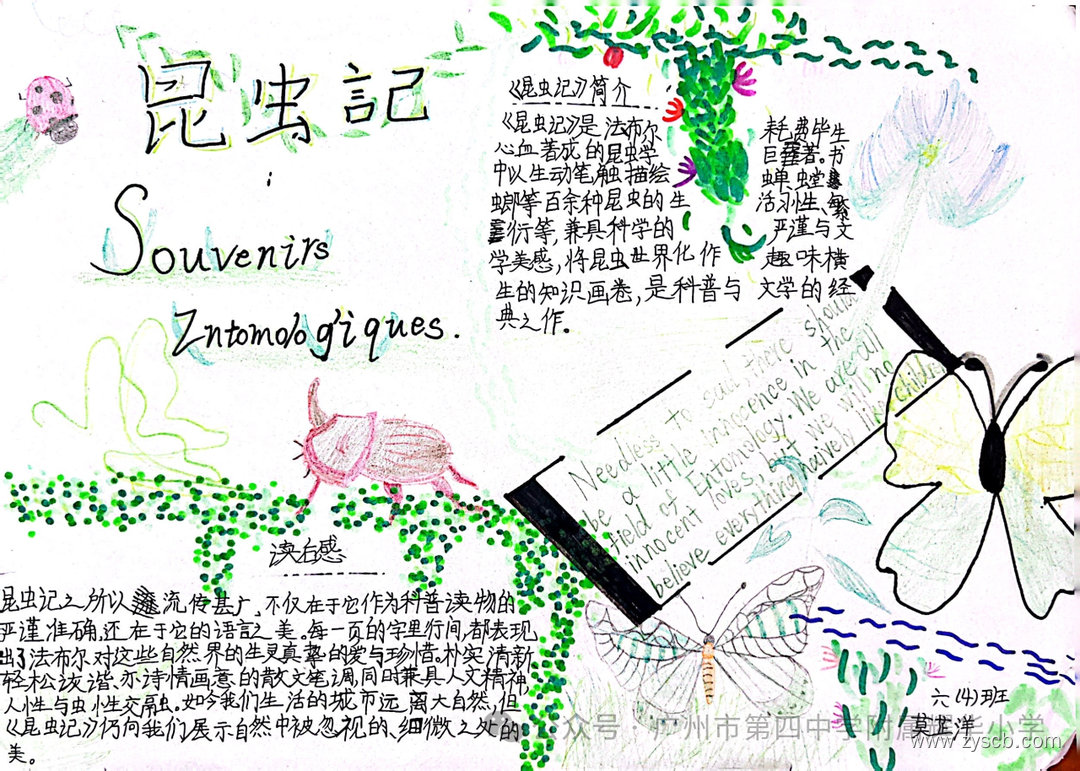 昆虫記
Souvenirs
Zntomologiques.
《昆虫记》简介
《昆虫记》是法布尔 耗费毕生
心血著成的昆虫学 巨著。书
中以生动笔触描绘 蝉、螳
螂等百余种昆虫的生 活习性、繁
衍等,兼具科学的 严谨与文
学美感,将昆虫世界化作 趣味横
生的知识画卷,是科普与 文学的经
典之作。
Needless to said there should
be a little innocence in the
field of Entomology. We are all
innocent loves, but we will no
believe everything naively like children
读后感
昆虫记之所以流传甚广,不仅在于它作为科普读物的
严谨准确,还在于它的语言之美。每一页的字里行间,都表现
出了法布尔对这些自然界的生灵真挚的爱与珍惜。朴实清新
轻松诙谐、亦诗情画意的散文笔调,同时兼具人文精神
人性与虫性交融。如今我们生活的城市远离大自然,但
《昆虫记》仍向我们展示自然中被忽视的、细微之处的
美。
六(4)班
公众号·广州市第四中学附属 小学
www.zyscb.com